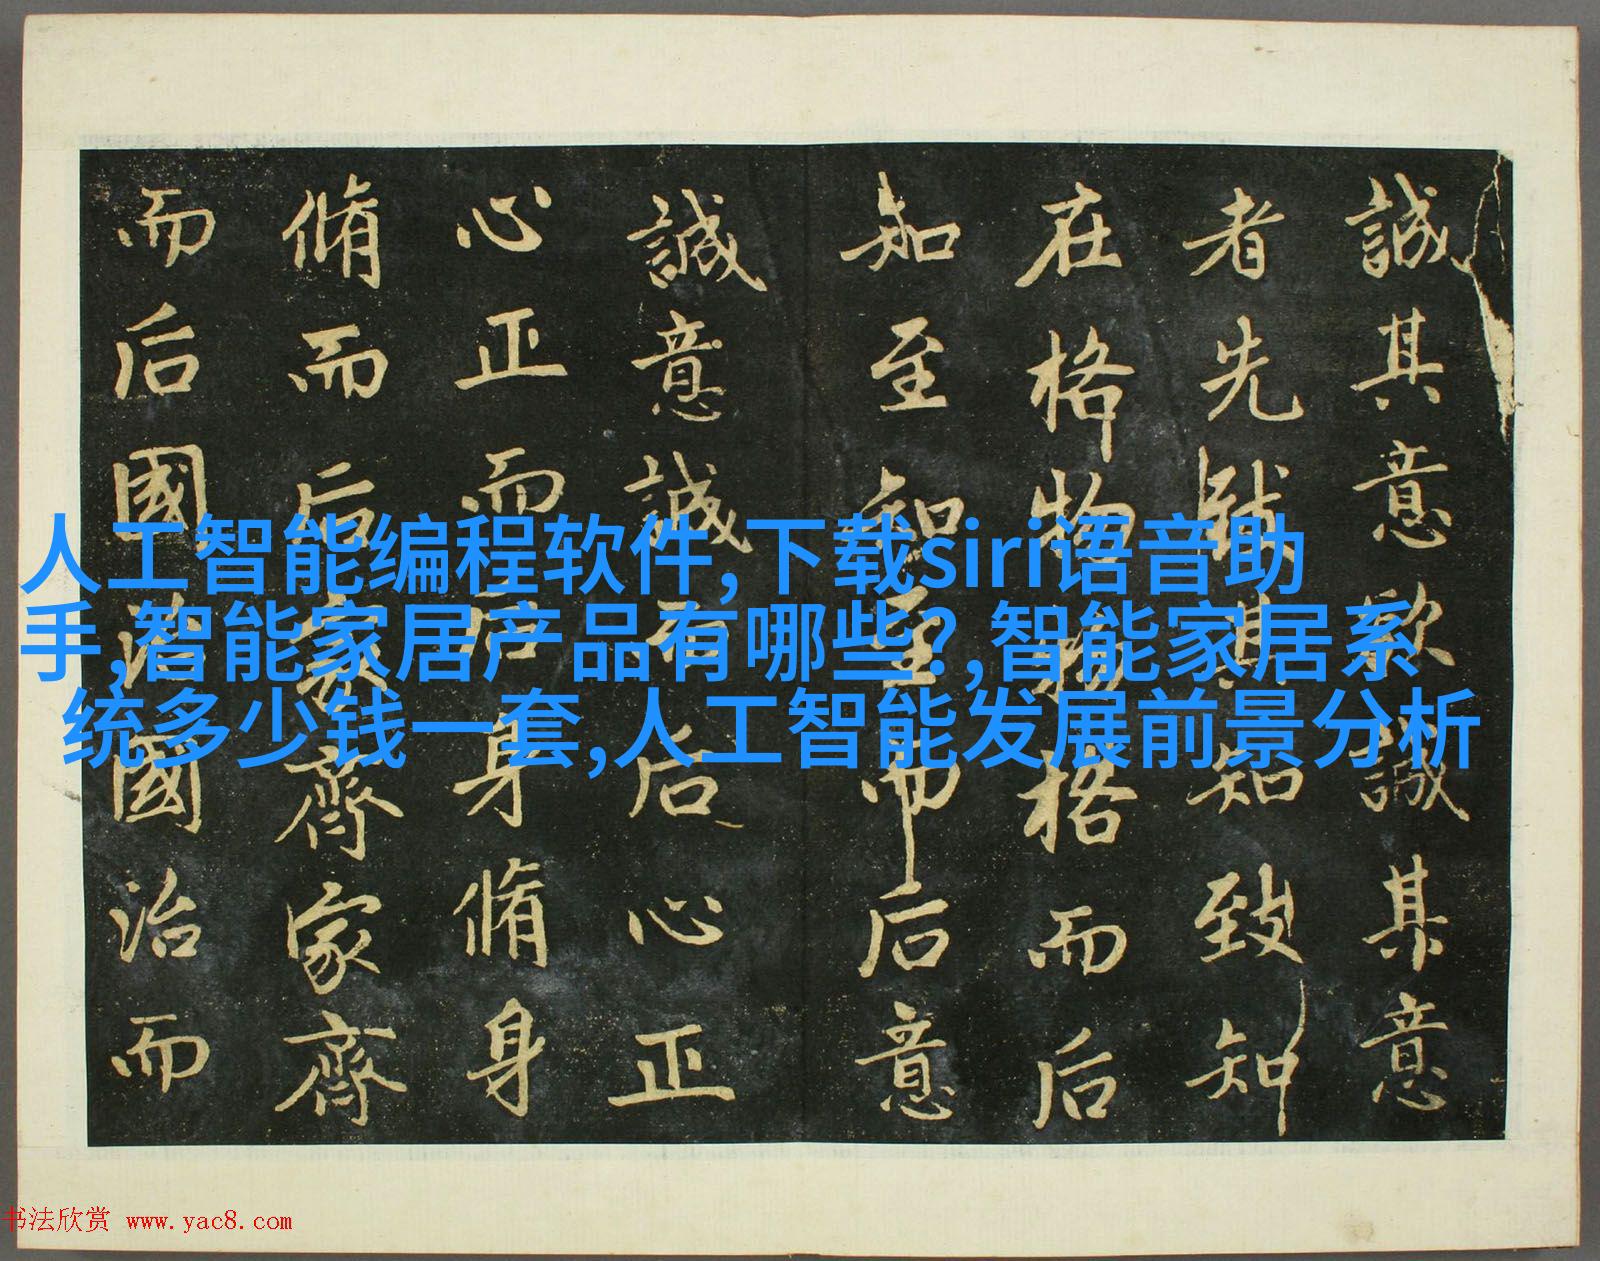 誠其意欲誠其意
者先致其知致知
在格物物格而后
知至知至而后意
誠意誠而后心正
心正而后身脩身
脩而后家齊家齊
而后國治國治而
人工智能编程软件,下载siri语音助
手,智能家居产品有哪些?,智能家居系
统多少钱一套,人工智能发展前景分析
书法欣赏 www.yac8.com